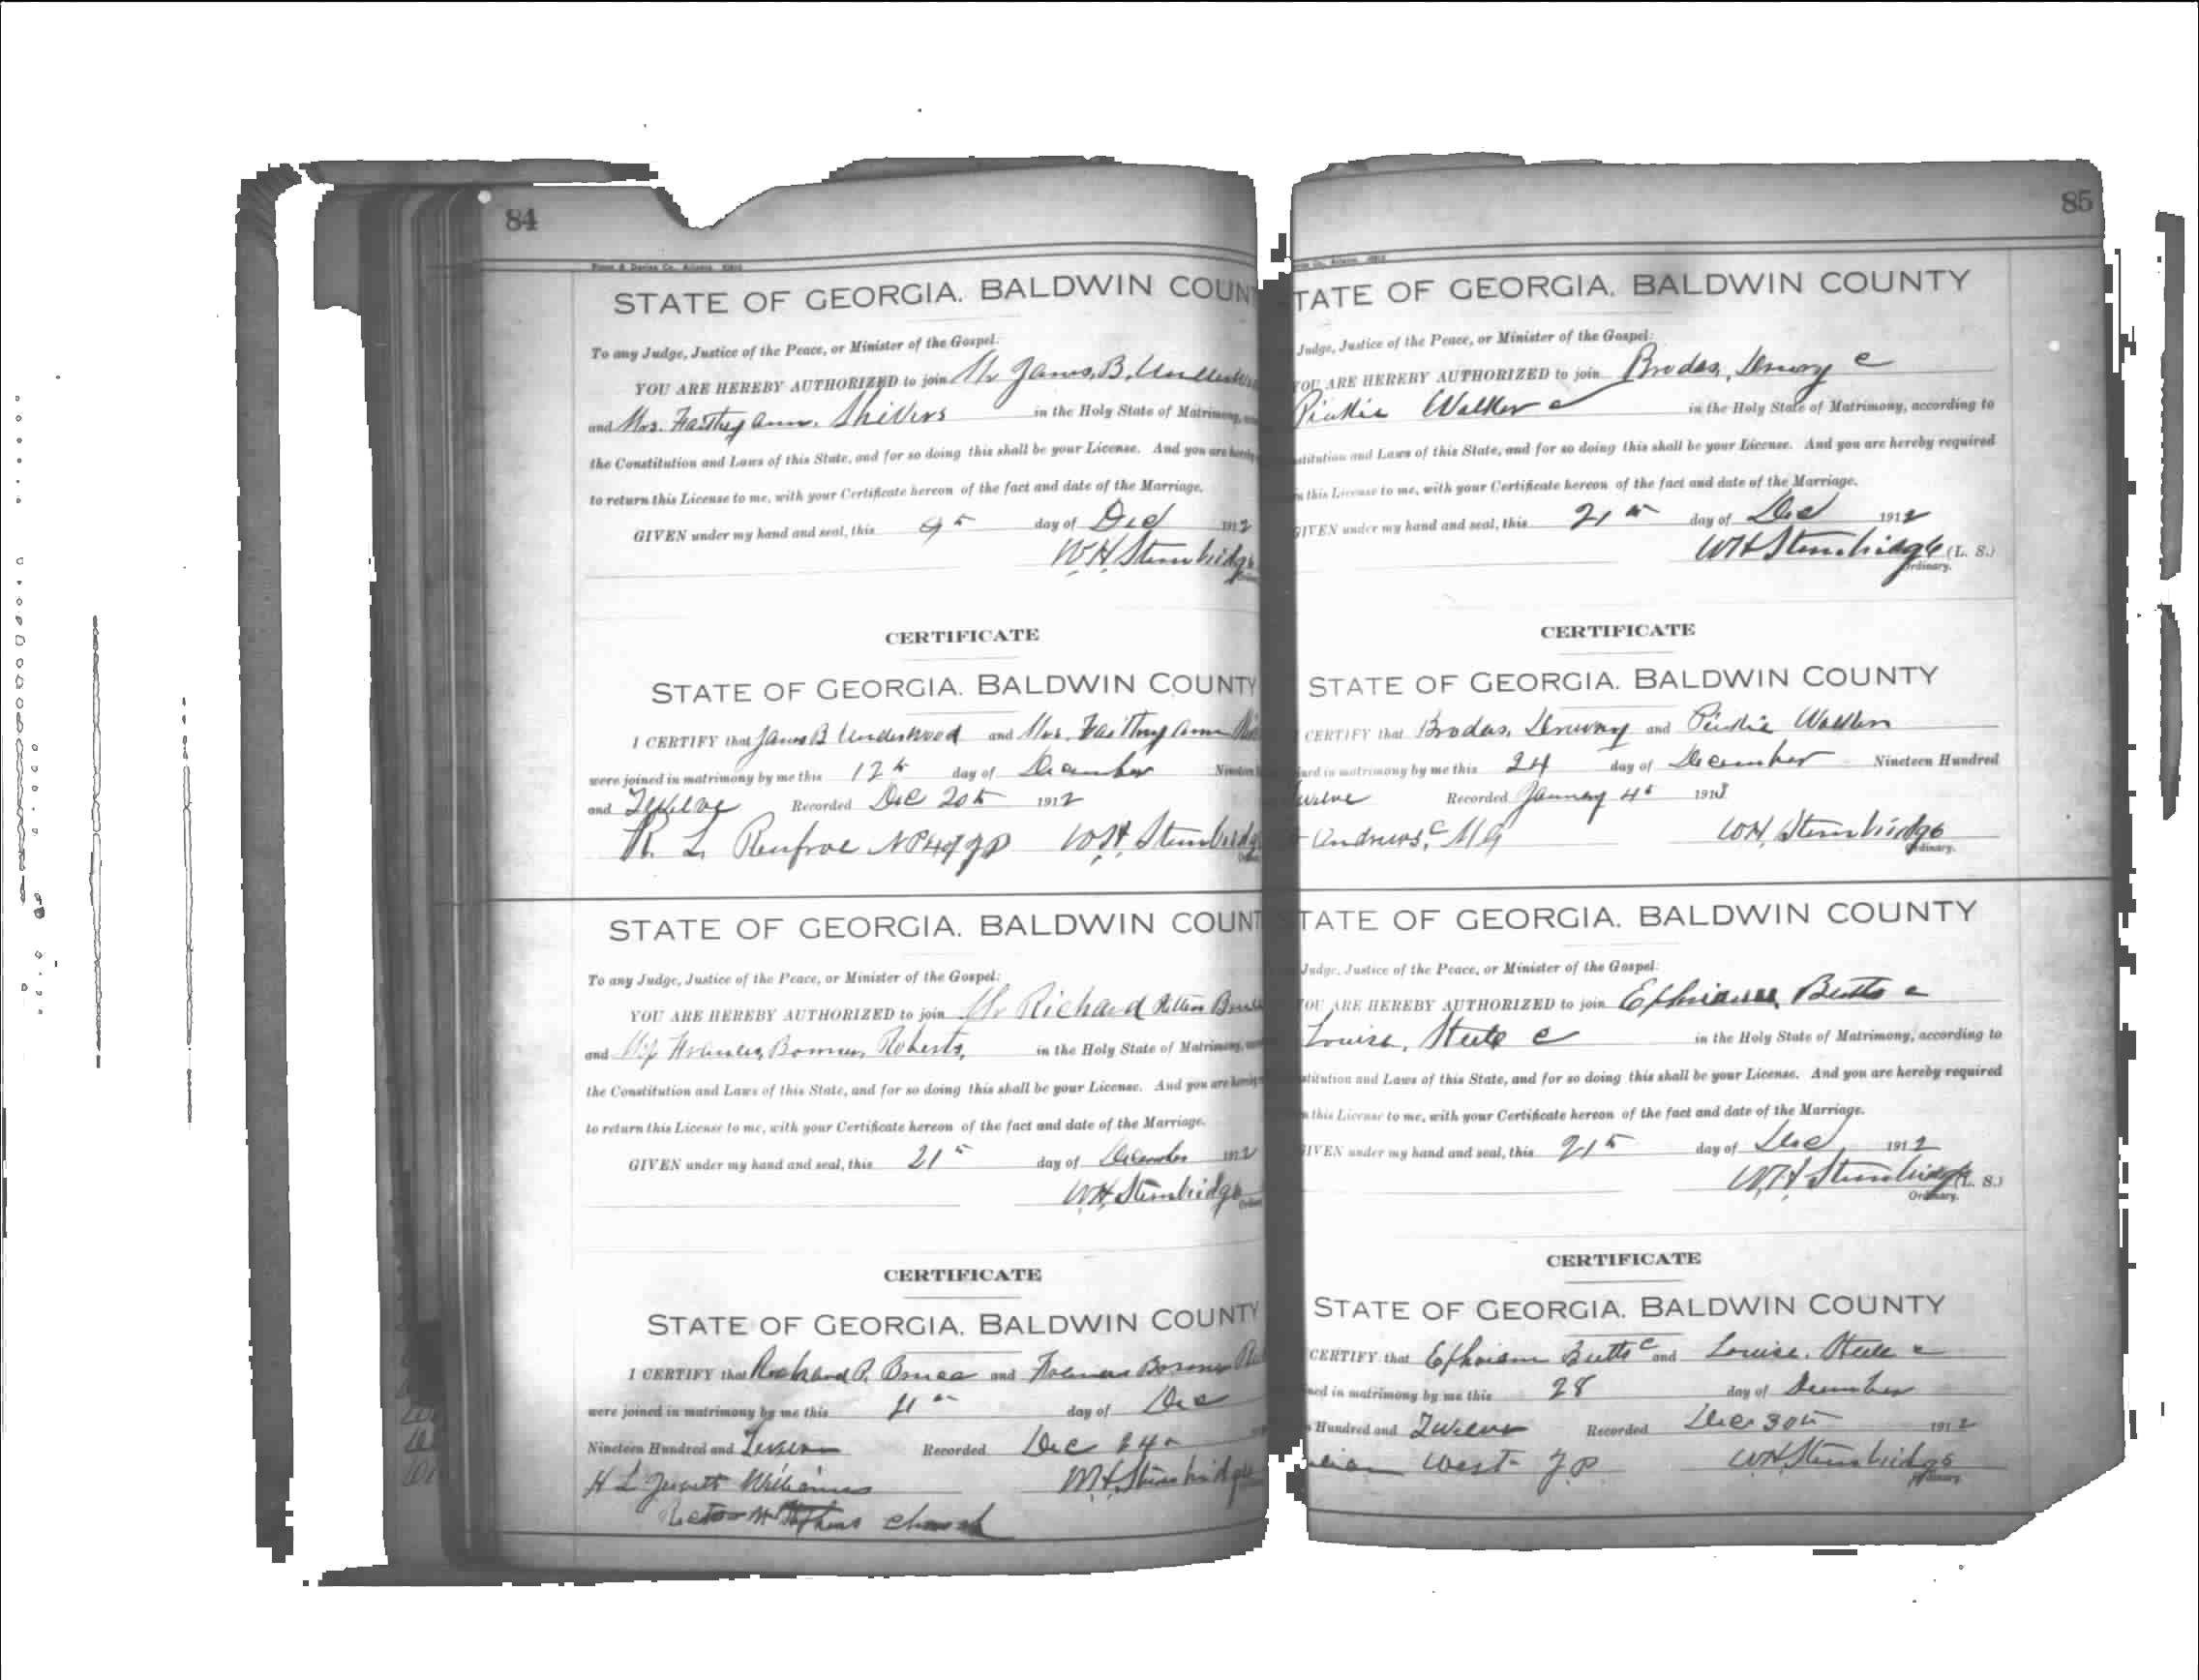 84
STATE OF GEORGIA. BALDWIN COUN
To any Judge, Justice of the Peace, or Minister of the Gospel:
YOU ARE HEREBY AUTHORIZED to join Mr James, B,
and Mrs. Ann. Shivers in the Holy State of Matrimony,
the Constitution and Laws of this State, and for so doing this shall be your License. And you are hereby
to return this License to me, with your Certificate hereon of the fact and date of the Marriage.
GIVEN under my hand and seal, this 9th day of Dec 1912
W.H. Stembridge
CERTIFICATE
STATE OF GEORGIA. BALDWIN COUNTY
I CERTIFY that James B Underwood and Mrs. Ann
were joined in matrimony by me this 12th day of December
and Twelve Recorded Dec 20th 1912
R. L. Renfroe W.H. Stembridge
STATE OF GEORGIA. BALDWIN COUNT
To any Judge, Justice of the Peace, or Minister of the Gospel:
YOU ARE HEREBY AUTHORIZED to join Mr Richard
and Roberts, in the Holy State of Matrimony,
the Constitution and Laws of this State, and for so doing this shall be your License. And you are hereby
to return this License to me, with your Certificate hereon of the fact and date of the Marriage.
GIVEN under my hand and seal, this 21st day of December 1912
W.H. Stembridge
CERTIFICATE
STATE OF GEORGIA. BALDWIN COUNTY
I CERTIFY that Richard P. and
were joined in matrimony by me this day of Dec
Nineteen Hundred and Recorded Dec
H L Williams W.H. Stembridge
Church
85
TATE OF GEORGIA. BALDWIN COUNTY
Judge, Justice of the Peace, or Minister of the Gospel:
YOU ARE HEREBY AUTHORIZED to join c
Pinkie Walker c in the Holy State of Matrimony, according to
stitution and Laws of this State, and for so doing this shall be your License. And you are hereby required
this License to me, with your Certificate hereon of the fact and date of the Marriage.
GIVEN under my hand and seal, this 21st day of Dec 1912
W.H. Stembridge (L. S.)
Ordinary.
CERTIFICATE
STATE OF GEORGIA. BALDWIN COUNTY
CERTIFY that and Pinkie
in matrimony by me this 24 day of December Nineteen Hundred
Recorded January 4th 1913
Andrews, c M G W.H. Stembridge
Ordinary.
TATE OF GEORGIA. BALDWIN COUNTY
Judge, Justice of the Peace, or Minister of the Gospel:
YOU ARE HEREBY AUTHORIZED to join Butts c
Louise, Steele c in the Holy State of Matrimony, according to
stitution and Laws of this State, and for so doing this shall be your License. And you are hereby required
this License to me, with your Certificate hereon of the fact and date of the Marriage.
GIVEN under my hand and seal, this 21st day of Dec 1912
W.H. Stembridge (L. S.)
Ordinary.
CERTIFICATE
STATE OF GEORGIA. BALDWIN COUNTY
CERTIFY that Ephraim Butts c and Louise, Steele c
in matrimony by me this 28 day of December
Hundred and Twelve Recorded Dec 30th 1912
West J.P. W.H. Stembridge
Ordinary.